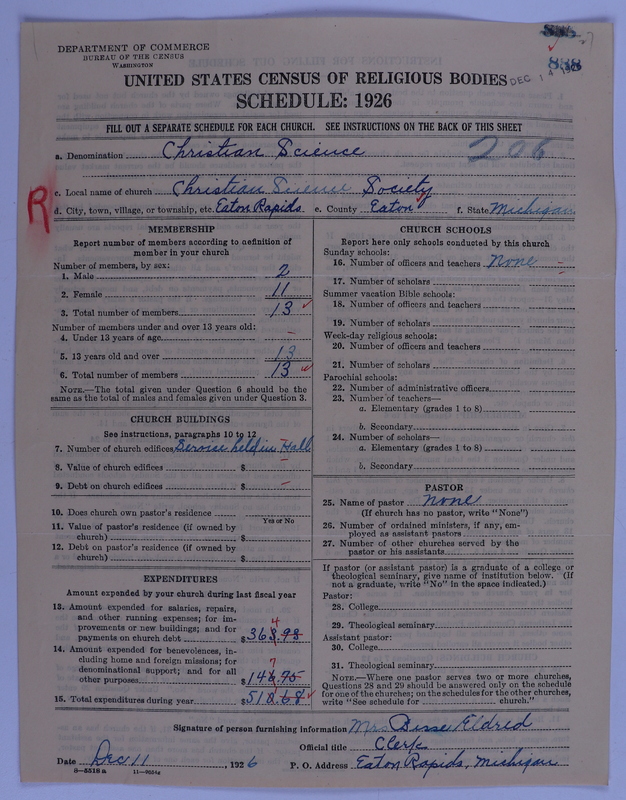 DEPARTMENT OF COMMERCE
BUREAU OF THE CENSUS
WASHINGTON
888
DEC 14 1926
UNITED STATES CENSUS OF RELIGIOUS BODIES
SCHEDULE: 1926
FILL OUT A SEPARATE SCHEDULE FOR EACH CHURCH. SEE INSTRUCTIONS ON THE BACK OF THIS SHEET
a. Denomination Christian Science 206
c. Local name of church Christian Science Society
R
d. City, town, village, or township, etc. Eaton Rapids e. County Eaton f. State Michigan
MEMBERSHIP
Report number of members according to definition of
member in your church
Number of members, by sex:
1. Male 2
2. Female 11
3. Total number of members 13
Number of members under and over 13 years old:
4. Under 13 years of age –
5. 13 years old and over 13
6. Total number of members 13
NOTE.—The total given under Question 6 should be
the same as the total of males and females given under Question 3.
CHURCH BUILDINGS
See instructions, paragraphs 10 to 12
7. Number of church edifices held in Hall
8. Value of church edifices $ –
9. Debt on church edifices $ –
10. Does church own pastor's residence
Yes or No
11. Value of pastor's residence (if owned by
church) $
12. Debt on pastor's residence (if owned by
church) $
EXPENDITURES
Amount expended by your church during last fiscal year
13. Amount expended for salaries, repairs,
and other running expenses; for im-
provements or new buildings; and for
payments on church debt $ 368.93
4
14. Amount expended for benevolences, in-
cluding home and foreign missions; for
denominational support; and for all
other purposes $ 146.75
7
15. Total expenditures during year $ 518.68
CHURCH SCHOOLS
Report here only schools conducted by this church
Sunday schools:
16. Number of officers and teachers None –
17. Number of scholars –
Summer vacation Bible schools:
18. Number of officers and teachers
19. Number of scholars
Week-day religious schools:
20. Number of officers and teachers
21. Number of scholars
Parochial schools:
22. Number of administrative officers
23. Number of teachers—
a. Elementary (grades 1 to 8)
b. Secondary
24. Number of scholars—
a. Elementary (grades 1 to 8)
b. Secondary
PASTOR
25. Name of pastor None
(If church has no pastor, write "None")
26. Number of ordained ministers, if any, em-
ployed as assistant pastors
27. Number of other churches served by the
pastor or his assistants
If pastor (or assistant pastor) is a graduate of a college or
theological seminary, give name of institution below. (If
not a graduate, write "No" in the space indicated.)
Pastor:
28. College
29. Theological seminary
Assistant pastor:
30. College
31. Theological seminary
NOTE.—Where one pastor serves two or more churches,
Questions 28 and 29 should be answered only on the schedule
for one of the churches; on the schedules for the other churches,
write "See schedule for church."
Signature of person furnishing information Mrs Eldred
Official title Clerk
Date Dec 11, 1926 P. O. Address Eaton Rapids, Michigan
8—5518a 11—9554